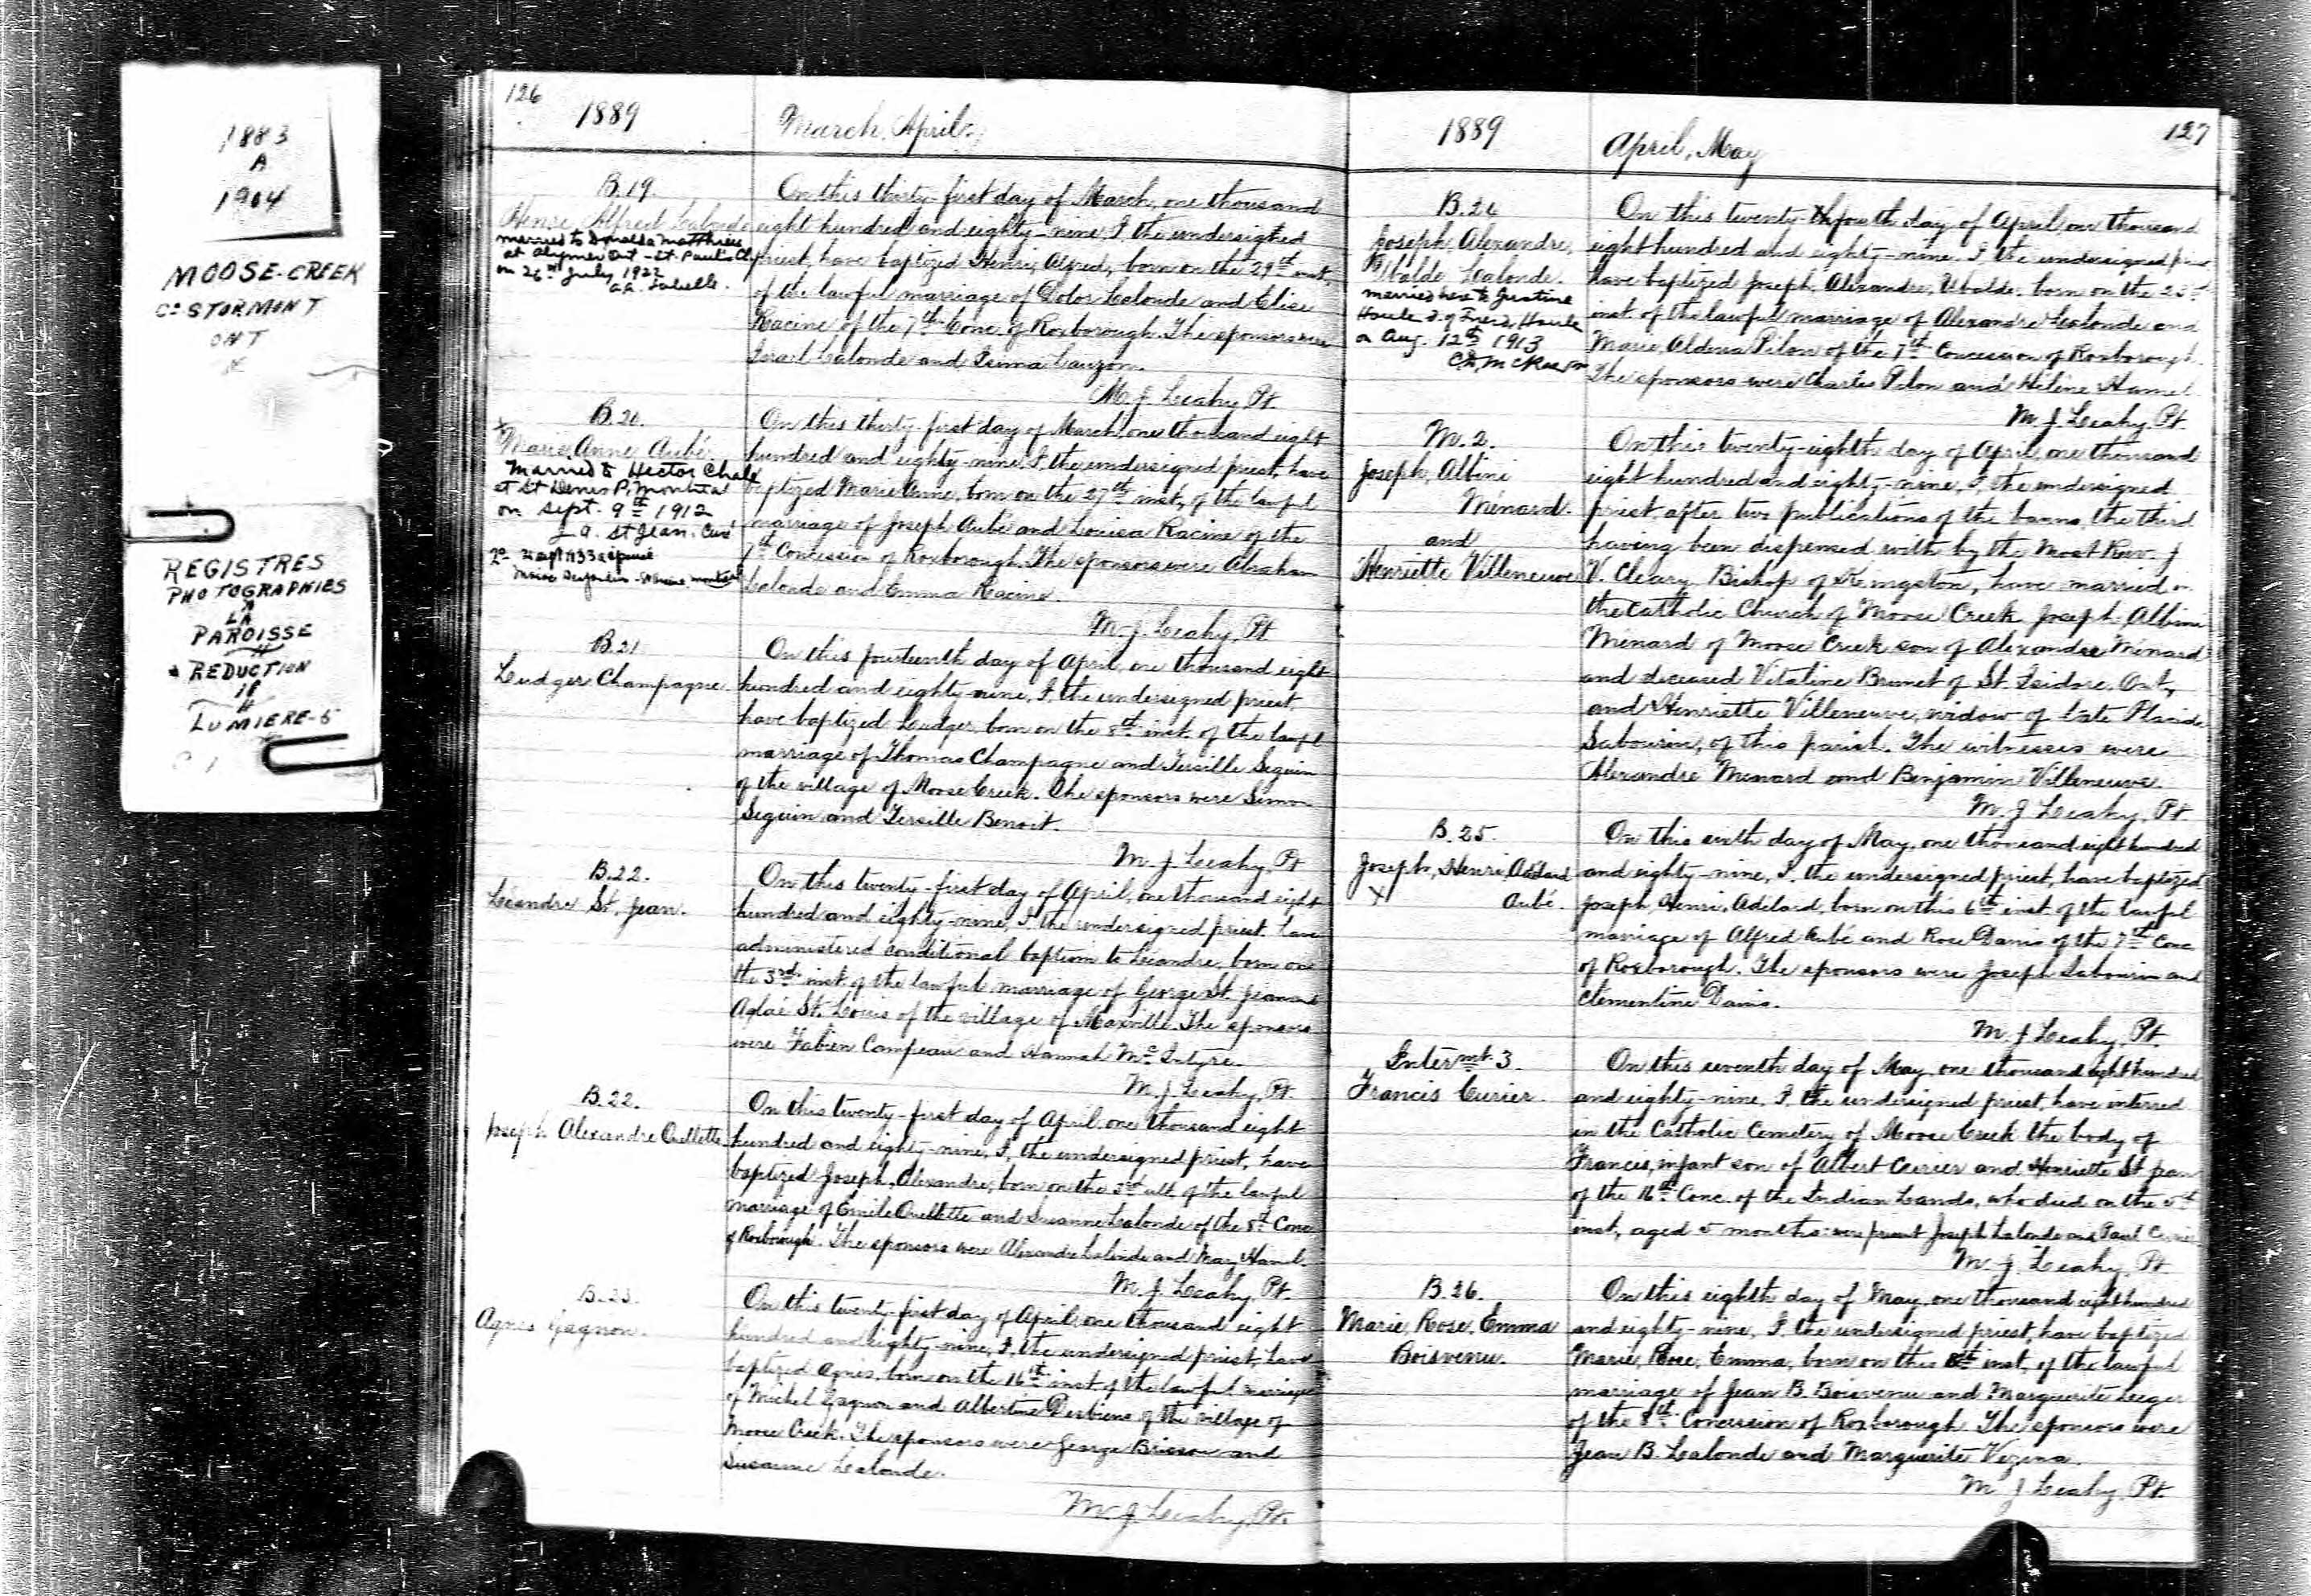 1883
A
1904
MOOSE-CREEK
Co STORMONT
ONT
REGISTRES
PHOTOGRAPHIES
A
LA
PAROISSE
REDUCTION
18
LUMIERE-5
126
1889
March, April.
B.19.
Henri Alfred Lalonde
married to Donalda Matthews
at Aylmer Ont - St. Paul's Ch
on 26th July 1922
On this thirty-first day of March, one thousand
eight hundred and eighty-nine, I the undersigned
priest, have baptized Henri, Alfred, born on the 29th inst,
of the lawful marriage of Dolor Lalonde and Elise
Racine of the 7th Conc. of Roxborough. The sponsors were
Israel Lalonde and Exima Lauzon.
M. J. Leahy, Pt.
B.20.
Marie Anne Aubé
Married to Hector
at St Denis P, Montreal
on Sept. 9th 1912
J. A. St Jean. Curé
2o
On this thirty-first day of March, one thousand eight
hundred and eighty-nine, I, the undersigned priest, have
baptized Marie Anne, born on the 27th inst, of the lawful
marriage of Joseph Aubé and Louisa Racine of the
7th Concession of Roxborough. The sponsors were Abraham
Lalonde and Emma Racine.
M. J. Leahy, Pt
B.21.
Ludger Champagne.
On this fourteenth day of April, one thousand eight
hundred and eighty-nine, I, the undersigned priest,
have baptized Ludger, born on the 8th inst. of the lawful
marriage of Thomas Champagne and Tersille Seguin
of the village of Moose Creek. The sponsors were Simon
Seguin and Tersille Benoit.
M. J. Leahy, Pt
B.22.
Léandre St. Jean.
On this twenty-first day of April, one thousand eight
hundred and eighty-nine, I, the undersigned priest have
administered conditional baptism to Léandre, born on
the 3rd inst of the lawful marriage of George St. Jean and
Aglaé St. Louis of the village of Maxville. The sponsors
were Fabien Campeau and Hannah Mc Intyre.
M. J. Leahy, Pt.
B.22.
Joseph Alexandre Ouellette
On this twenty-first day of April, one thousand eight
hundred and eighty-nine, I, the undersigned priest, have
baptized Joseph, Alexandre, born on the 3rd ult. of the lawful
marriage of Émile Ouellette and Susanne Lalonde of the 8th Conc
of Roxborough. The sponsors were Alexandre Lalonde and Mary Hamel.
M. J. Leahy, Pt.
B.23.
Agnes Gagnon.
On this twenty-first day of April, one thousand eight
hundred and eighty-nine, I, the undersigned priest, have
baptized Agnes, born on the 16th inst of the lawful marriage
of Michel Gagnon and Albertine Desbiens of the village of
Moose Creek. The sponsors were George Brisson and
Susanne Lalonde.
M. J. Leahy, Pt.
127
1889
April, May
B.24
Joseph, Alexandre,
Ubalde Lalonde.
married here to Justine
Houle d. of Houle
on Aug. 12th 1913
On this twenty-fourth day of April, one thousand
eight hundred and eighty-nine, I the undersigned priest
have baptized Joseph, Alexandre, Ubalde, born on the 23rd
inst. of the lawful marriage of Alexandre Lalonde and
Marie Aldena Pilon of the 7th Concession of Roxborough.
The sponsors were Charles Pilon and Héline Hamel
M. J. Leahy, Pt.
M. 2.
Joseph, Albini
Ménard.
and
Henriette Villeneuve
On this twenty-eighth day of April, one thousand
eight hundred and eighty-nine, I, the undersigned
priest, after two publications of the banns, the third
having been dispensed with by the Most Rev. J
V. Cleary, Bishop of Kingston, have married in
the Catholic Church of Moose Creek Joseph Albini
Ménard of Moose Creek son of Alexandre Ménard
and deceased Vitaline Brunet of St. Isidore, Ont,
and Henriette Villeneuve, widow of late Placide
Sabourin, of this parish. The witnesses were
Alexandre Menard and Benjamin Villeneuve.
M. J. Leahy, Pt.
B.25.
Joseph, Henri, Adelard
Aubé.
On this sixth day of May, one thousand eight hundred
and eighty-nine, I, the undersigned priest, have baptized
Joseph, Henri, Adelard, born on this 6th inst of the lawful
marriage of Alfred Aubé and Rose Danis of the 7th Conc
of Roxborough. The sponsors were Joseph Sabourin and
Clémentine Danis.
M. J Leahy, Pt.
Intermt. 3.
Francis Curier.
On this seventh day of May, one thousand eight hundred
and eighty-nine, I, the undersigned priest, have interred
in the Catholic Cemetery of Moose Creek the body of
Francis, infant son of Albert Curier and Henriette St. Jean
of the 16th Conc. of the Indian Lands, who died on the 5th
inst, aged 5 months: were present Joseph Lalonde and Paul Curier
M. J. Leahy, Pt.
B.26.
Marie Rose, Emma
Boisvenu.
On this eighth day of May, one thousand eight hundred
and eighty-nine, I, the undersigned priest, have baptized
Marie, Rose, Emma, born on this 8th inst, of the lawful
marriage of Jean B. Boisvenu and Marguerite Leger
of the 8th Concession of Roxborough. The sponsors were
Jean B. Lalonde and Marguerite Vezina.
M J Leahy, Pt.